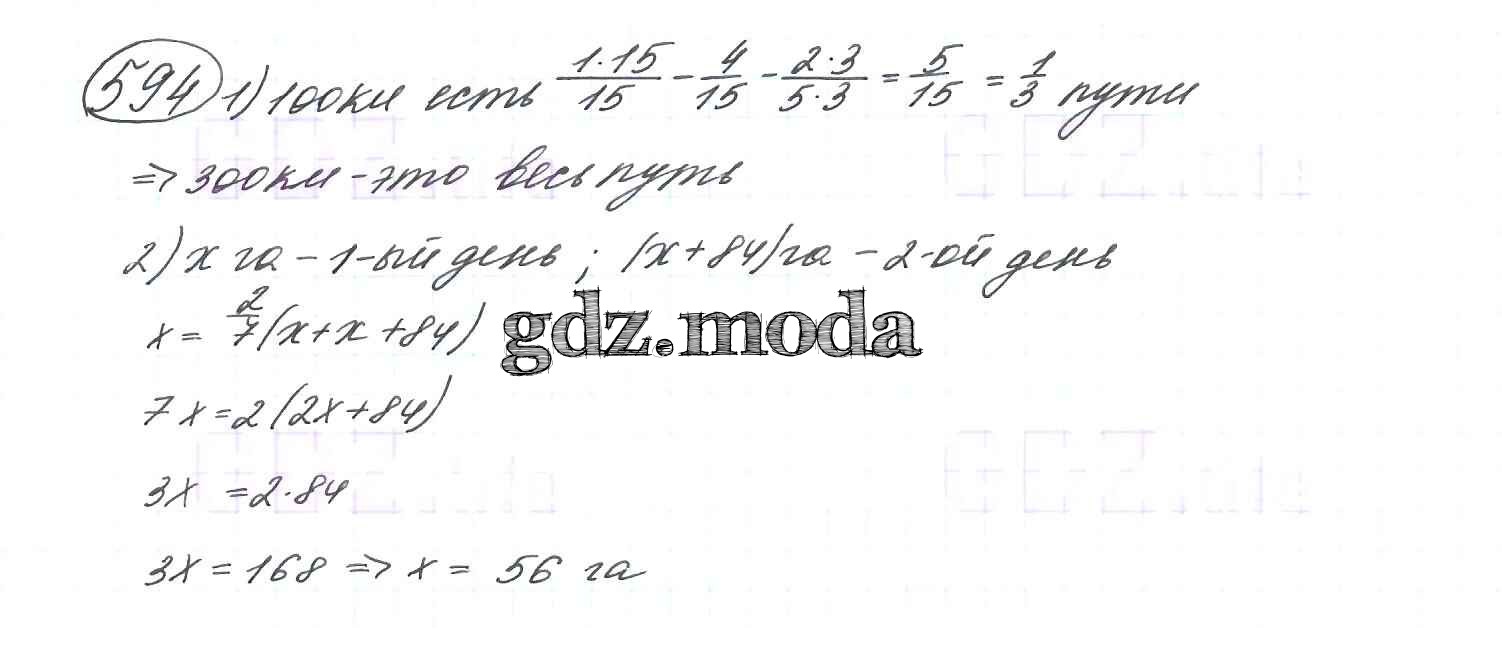 594 1) 100км есть 1·15/15 - 4/15 - 2·3/5·3 = 5/15 = 1/3 пути
=> 300км - это весь путь
2) х га - 1-ый день ; (х+84)га - 2-ой день
х = 2/7(х+х+84)
gdz.moda
7х=2(2х+84)
3х =2·84
3х = 168 => х = 56 га